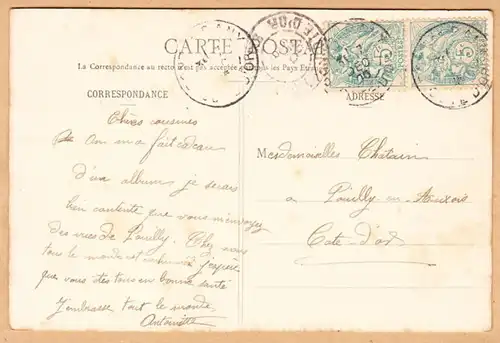 CARTE POSTALE
La Correspondance au recto n'est pas acceptée par tous les Pays Etrangers
CORRESPONDANCE
ADRESSE
Chères cousines
On m'a fait cadeau
d'un album, je serais
bien contente que vous m'envoyez
des vues de Pouilly. Chez nous
tout le monde est enrhumé j'espère
que vous êtes tous en bonne santé
J'embrasse tout le monde
Antoinette
Mesdemoiselles Chatain
a Pouilly-en-Auxois
Cote-d'or
COTE D'OR
5
POSTES
5